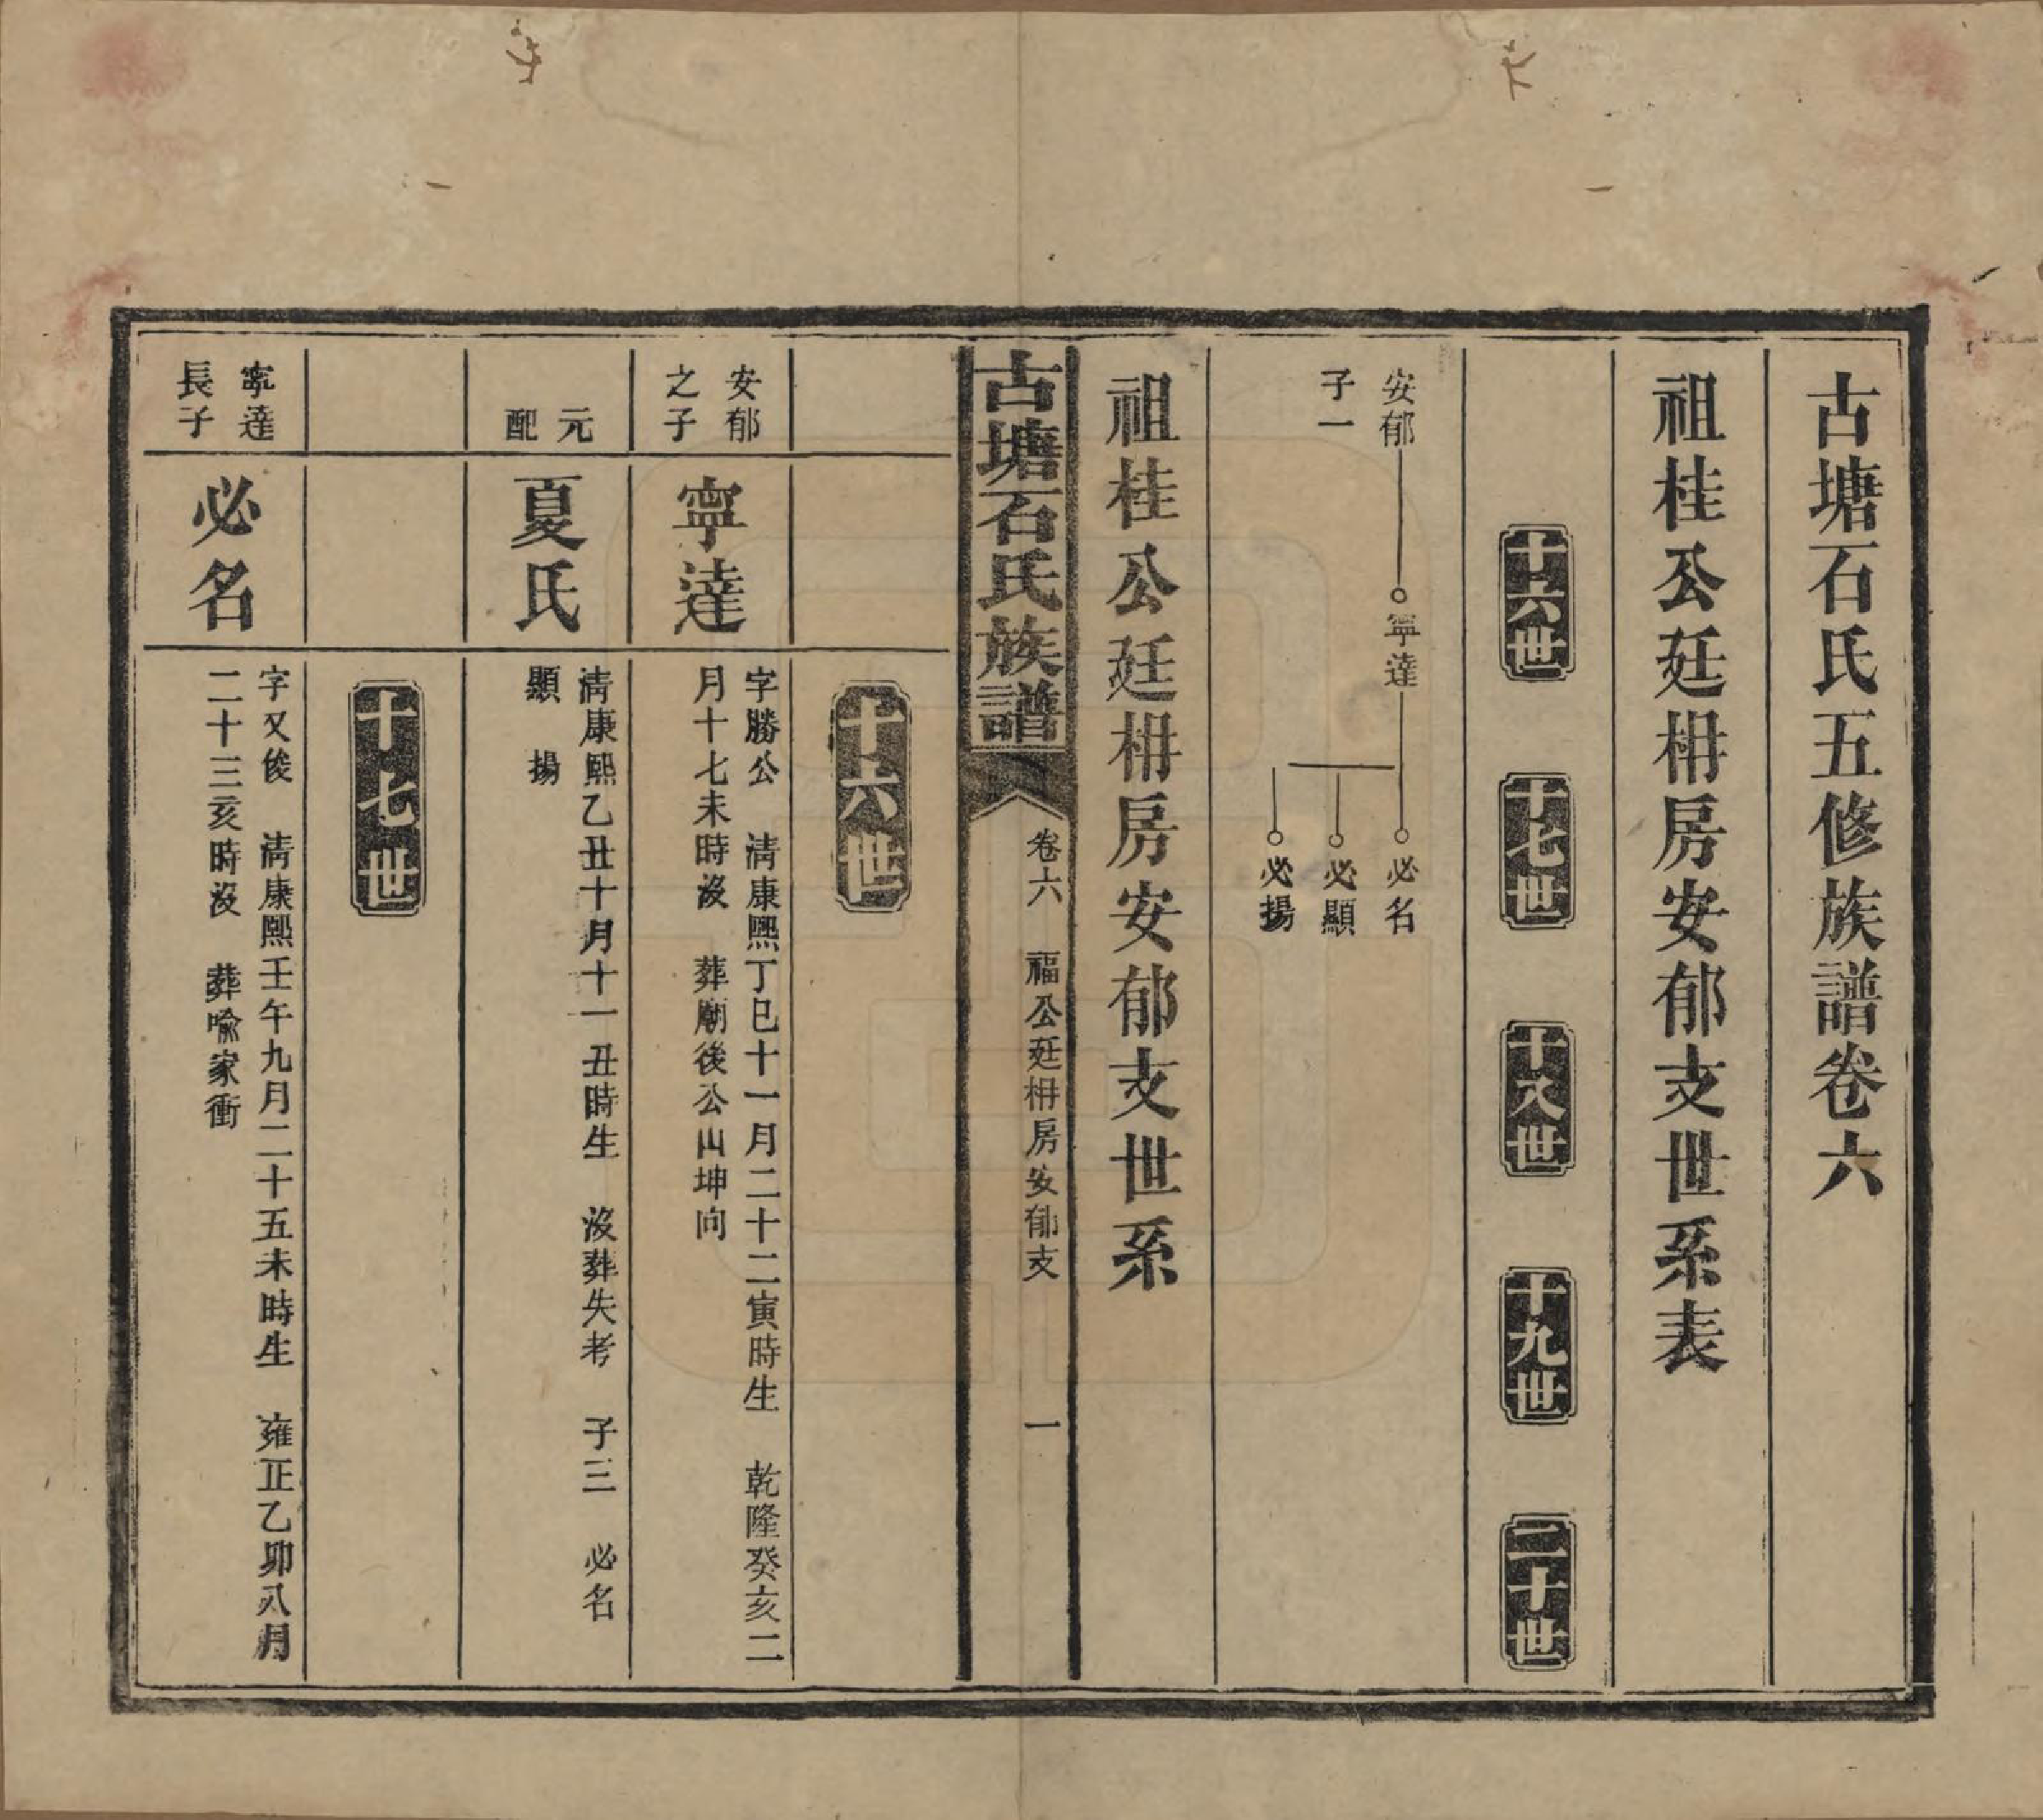 古塘石氏五修族譜卷六
祖桂公廷枏房安郁支世系表
十六世
十七世
十八世
十九世
二十世
安郁
子一
寧達
必名
必顯
必揚
祖桂公廷枏房安郁支世系
古塘石氏族譜
卷六
福公廷枏房安郁支
一
十六世
安郁
之子
寧達
字勝公　清康熙丁巳十一月二十二寅時生　乾隆癸亥二
月十七未時沒　葬廟後公山坤向
元
配
夏氏
清康熙乙丑十月十一丑時生　沒葬失考　子三　必名
顯　揚
十七世
寧達
長子
必名
字又俊　清康熙壬午九月二十五未時生　雍正乙卯八月
二十三亥時沒　葬喻家衝